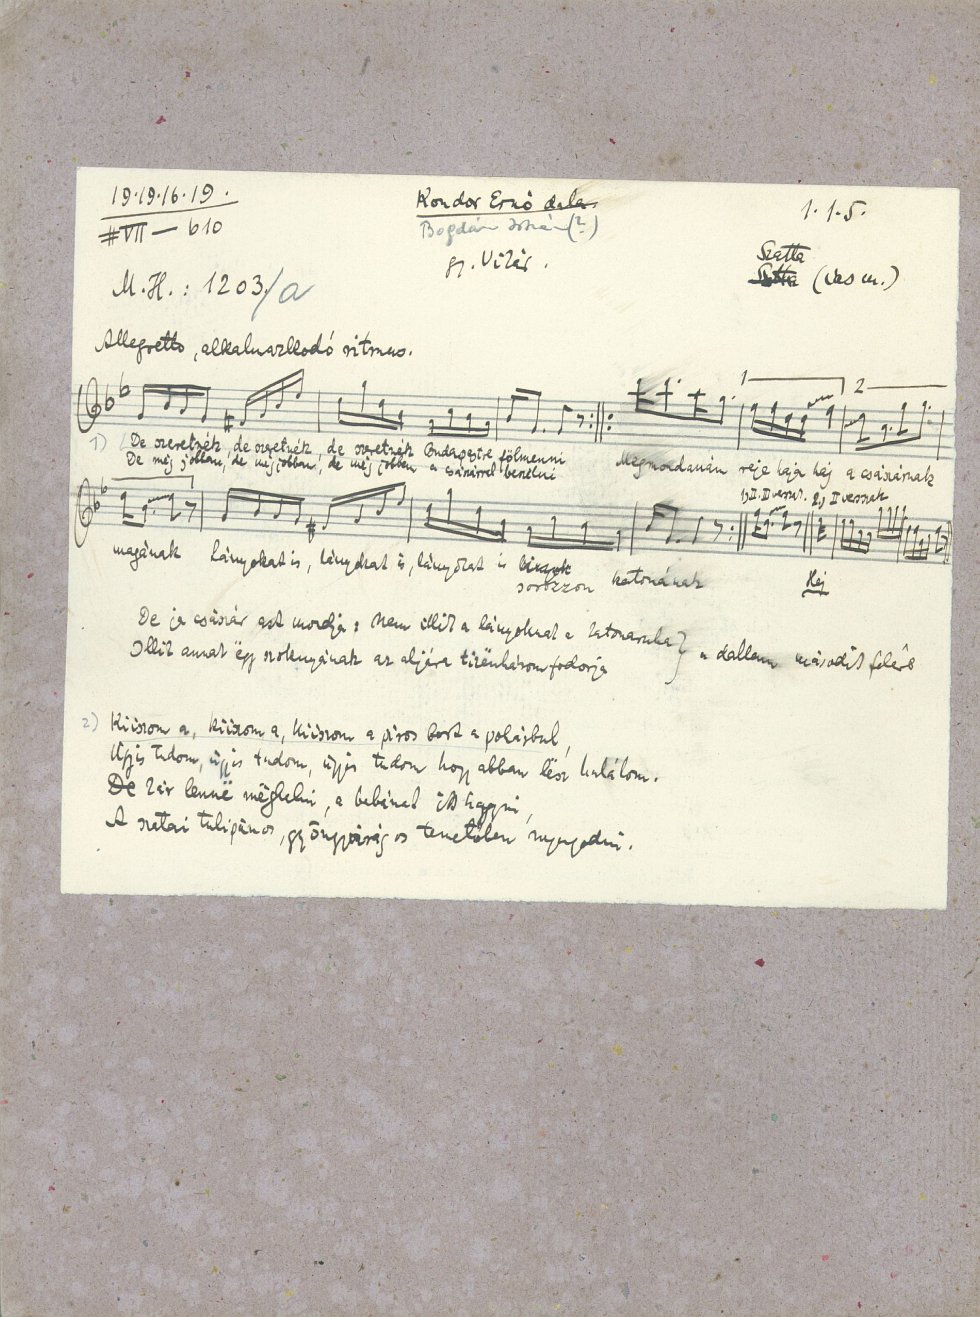 19.19.16.19.
VII — b10
Kondor Ernő dala
Bogdán István (?)
gy. Vikár.
1.1.5.
Szatta
Sotta (Vas m.)
M.H.: 1203/a
Allegretto, alkalmazkodó ritmus.
1 2
1) De szeretnék, de szeretnék, de szeretnék Budapestre fölmenni Megmondanám neje haja haj a császárnak
De méj jobban, de méj jobban, de méj jobban a császárral beszélni
1, II. versz. 2, II versnek
magának Lányokat is, lányokat is, lányokat is sorozzon katonának Hej
De ja császár azt mondja: Nem illik a lányoknak a katonaruha } a dallam második felére
Illik annak ëgy szoknyának az aljára tizënhárom fodorja
2) Kiiszom a, kiiszom a, kiiszom a piros bort a pohárbul,
Ugyis tudom, ugyis tudom, ugyis tudom hogy abban lësz halálom.
De kár lënnë mëghalni, a babámat itt hagyni,
A szatai tulipános, gyöngyvirágos temetőben nyugodni.